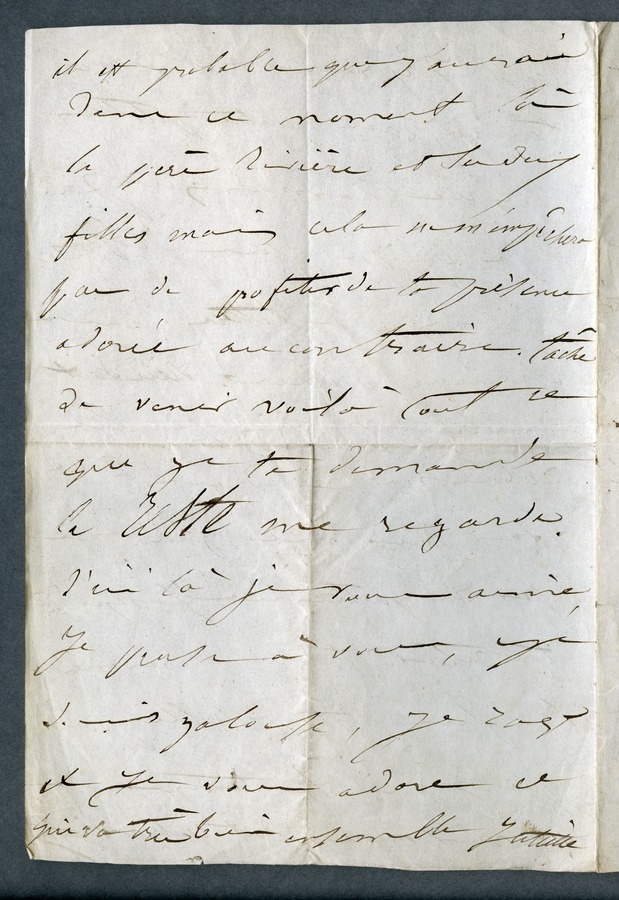 il est probable que j'aurai
dans ce moment là
le père Rivière et ses deux
filles mais cela ne m'empêchera
pas de profiter de ta présence
adorée au contraire. tâche
de venir voilà tout ce
que je te demande
le reste me regarde.
d'ici là je vous aime,
je pense à vous, je
suis jalouse, je rage
et je vous adore ce
qui va très bien ensemble